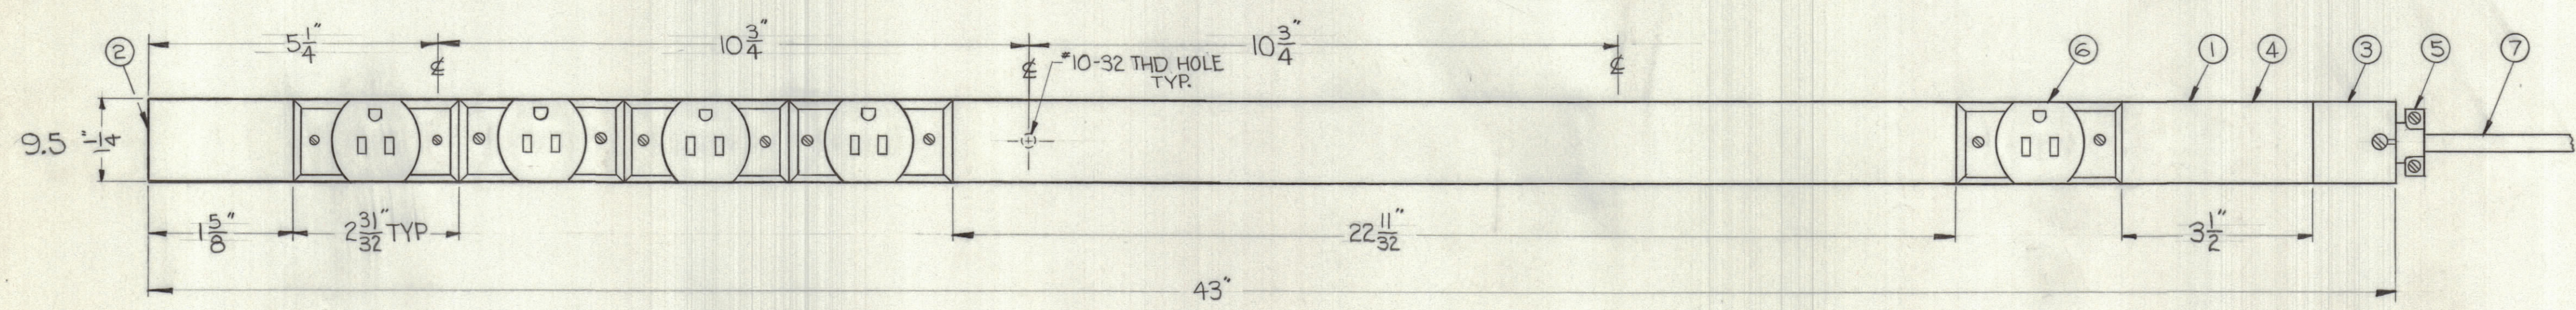 5 1/4"
10 3/4"
10 3/4"
℄
℄
℄
#10-32 THD HOLE
TYP.
2
6
1
4
3
5
7
9.5 1 1/4"
1 5/8"
2 31/32" TYP
22 11/32"
3 1/2"
43"